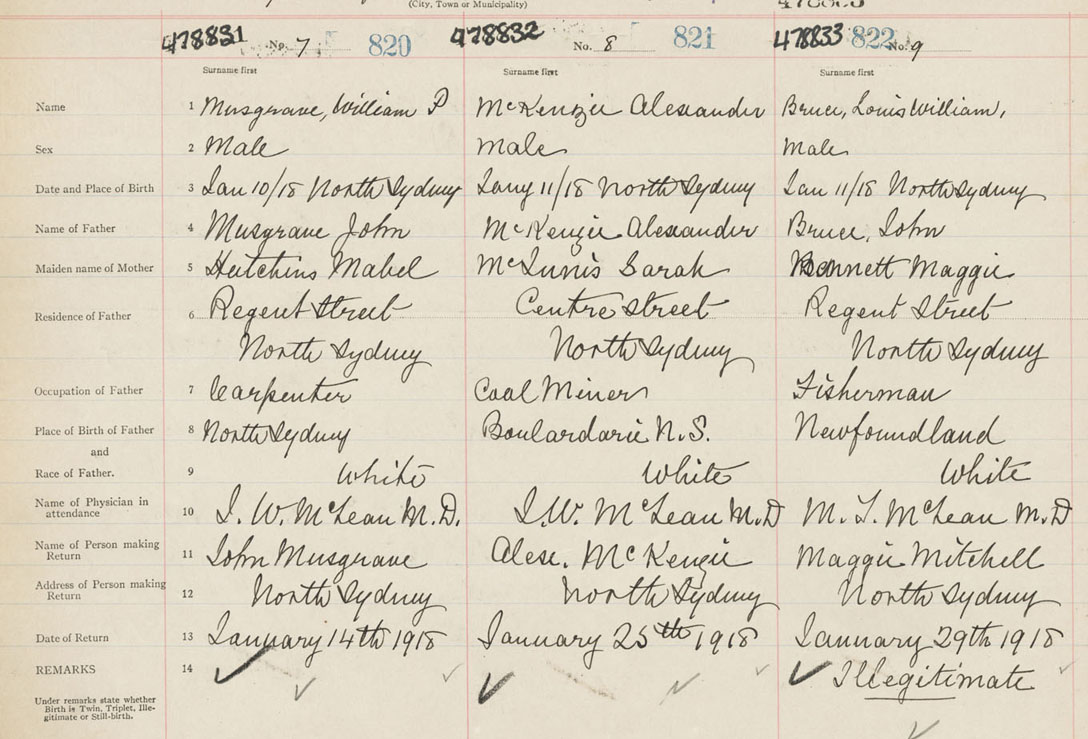 (City, Town or Municipality)
478831 No. 7 820 478832 No. 8 821 478833 822 No. 9
Surname first Surname first Surname first
Name 1 Musgrave, William P McKenzie Alexander Bruce, Louis William,
Sex 2 Male Male Male
Date and Place of Birth 3 Jan 10/18 North Sydney Jany 11/18 North Sydney Jan 11/18 North Sydney
Name of Father 4 Musgrave John McKenzie Alexander Bruce, John
Maiden name of Mother 5 Hutchins Mabel McInnis Sarah Bennett Maggie
Residence of Father 6 Regent Street Centre Street Regent Street
North Sydney North Sydney North Sydney
Occupation of Father 7 Carpenter Coal Miner Fisherman
Place of Birth of Father 8 North Sydney Boulardarie N.S. Newfoundland
and
Race of Father. 9 White White White
Name of Physician in attendance 10 J. W. McLean M.D. J.W. McLean M.D M. T. McLean M.D
Name of Person making Return 11 John Musgrave Alex. McKenzie Maggie Mitchell
Address of Person making Return 12 North Sydney North Sydney North Sydney
Date of Return 13 January 14th 1918 January 25th 1918 January 29th 1918
REMARKS 14 Illegitimate
Under remarks state whether
Birth is Twin, Triplet, Ille-
gitimate or Still-birth.